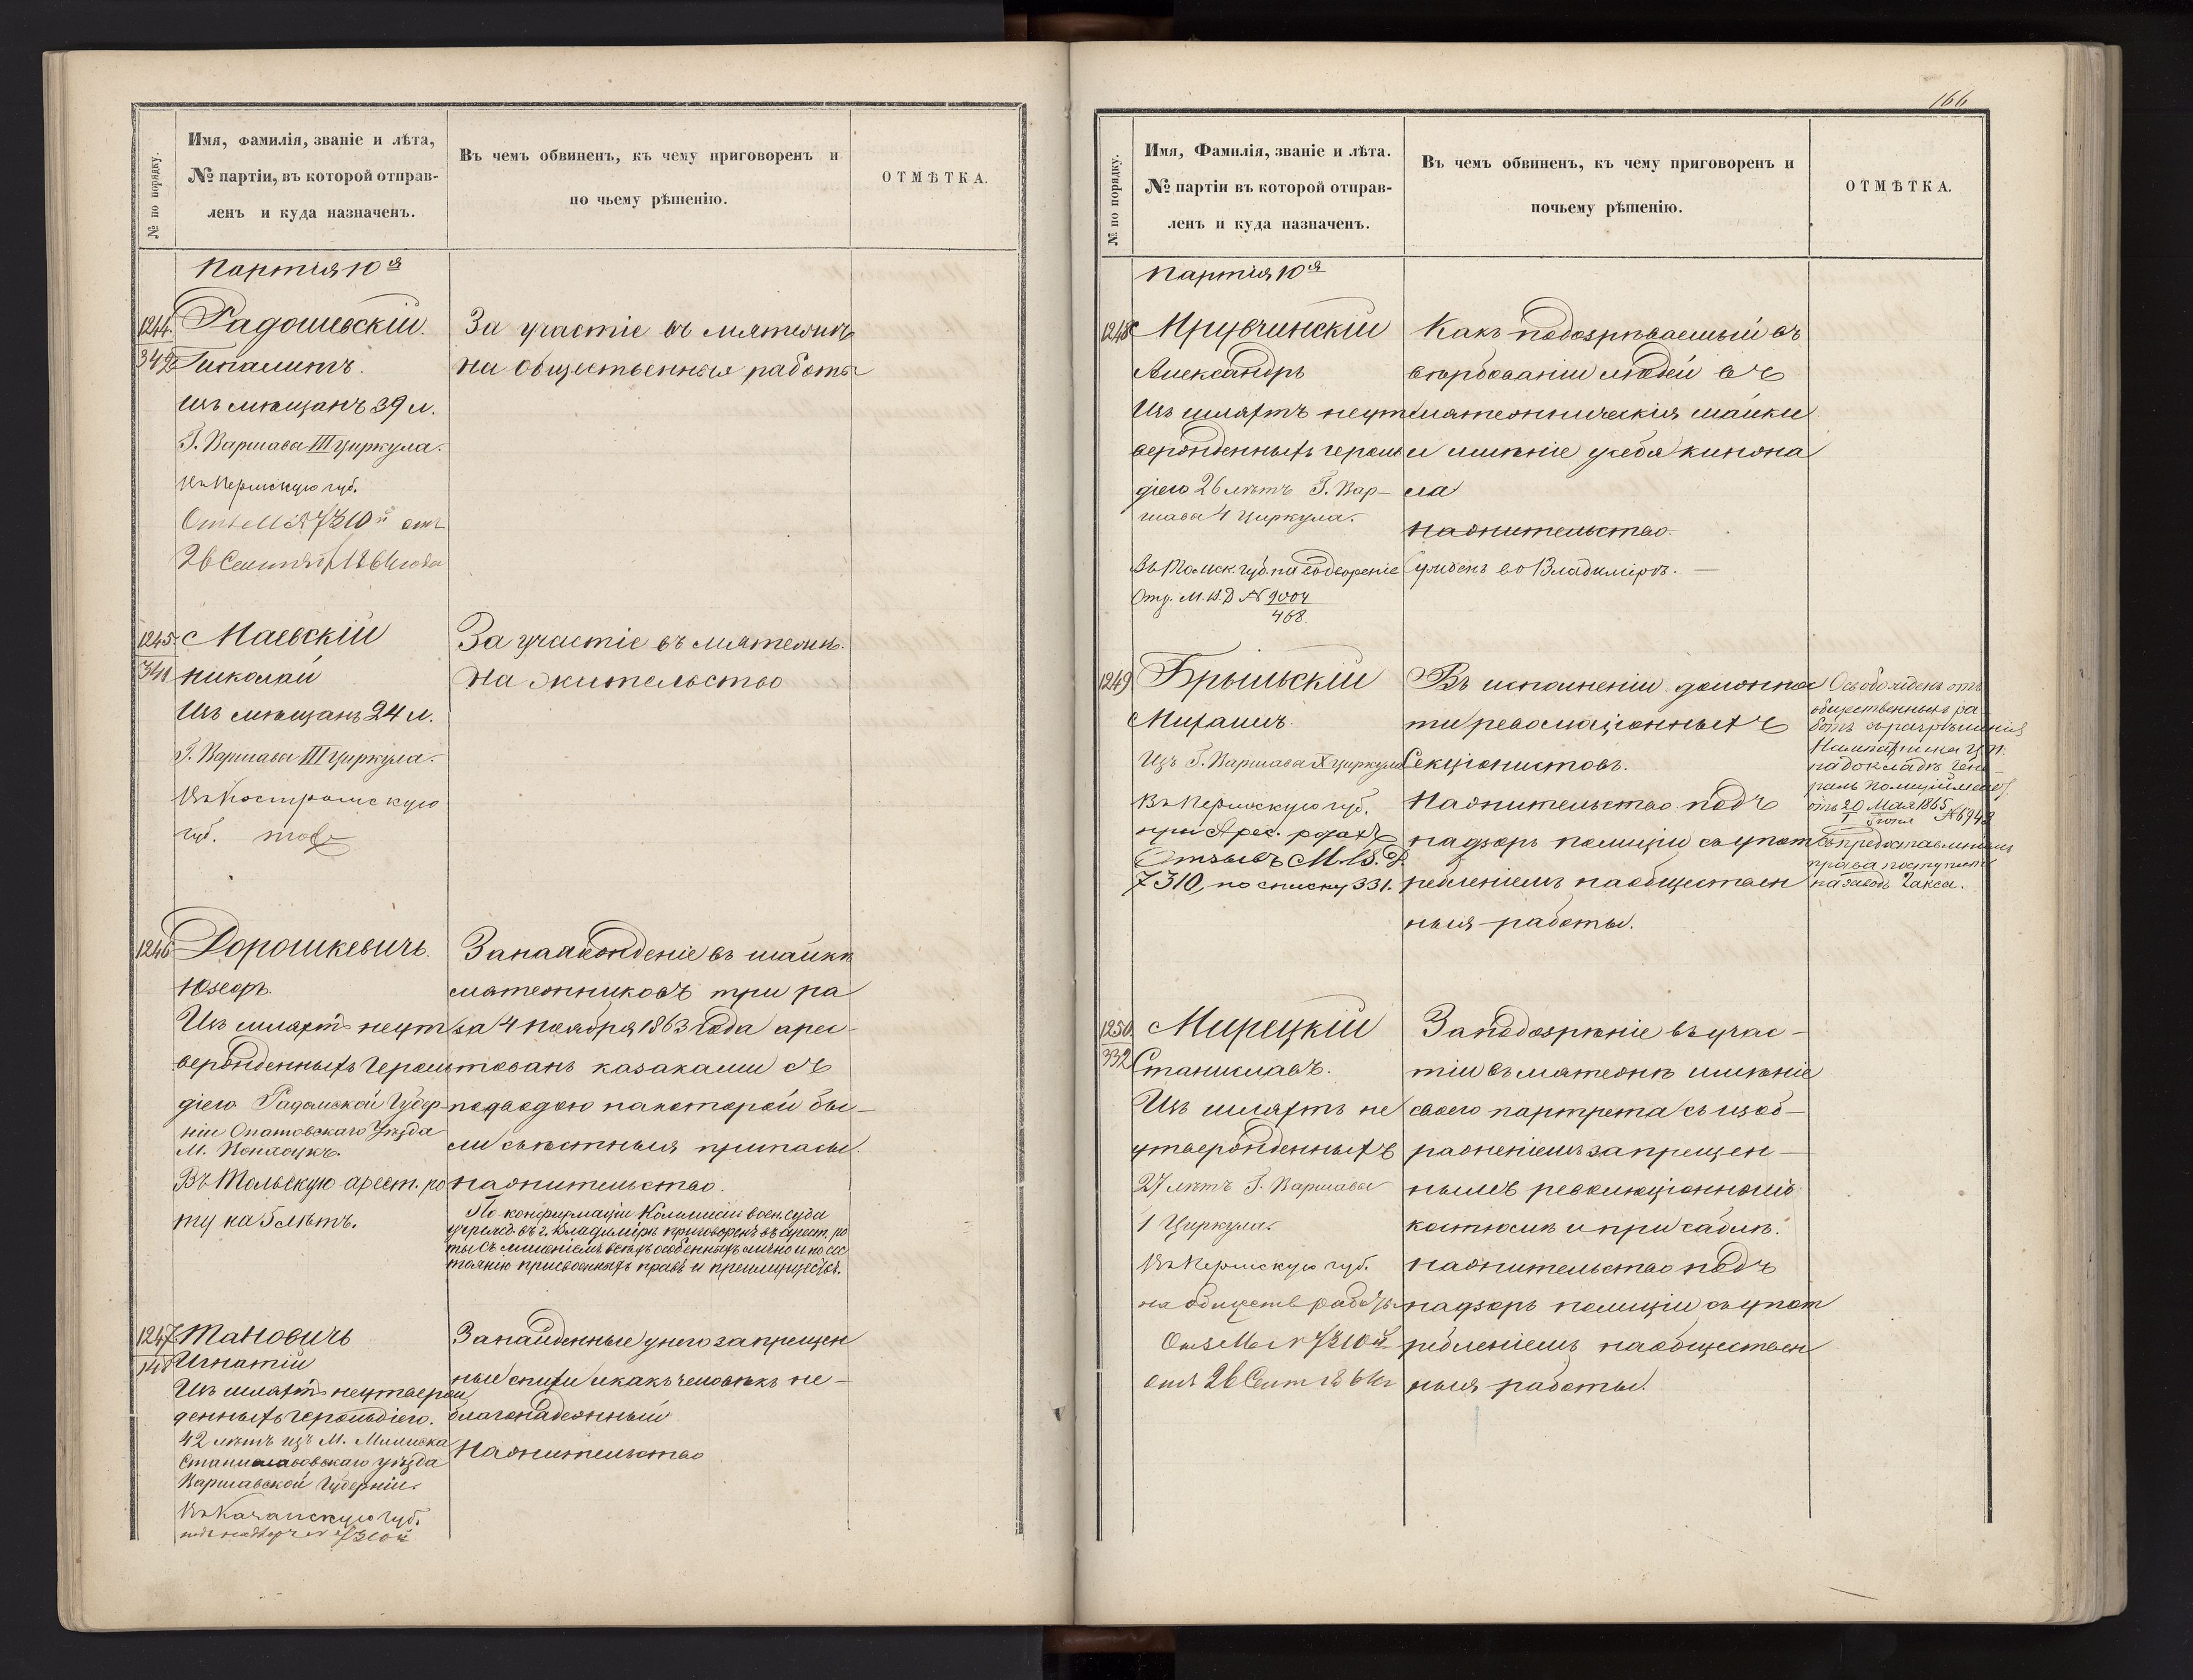 № по порядку.
Имя, Фамилія, званіе и лѣта,
№ партіи, въ которой отправ-
ленъ и куда назначенъ.
Въ чемъ обвиненъ, къ чему приговоренъ и
по чьему рѣшенію.
ОТМѢТКА.
Партія 10я
1244.
342
Радошевскій.
Гипалитъ.
Изъ мѣщанъ 39 л.
Г. Варшава III циркула.
Въ Пермскую губ.
26 Сентября 1864 года
За участіе въ мятежѣ
На общественныя работы
1245.
341
Маевскій
Николай
Изъ мѣщанъ 24 л.
Г. Варшавы III циркула.
Въ Костромскую
губ.
За участіе въ мятежѣ.
На жительство
1246
Дорошкевичъ.
Юзефъ.
Изъ шляхтъ неут
вержденныхъ герольдіею
Радомской Губер-
ніи Опатовскаго Уѣзда
Въ Тольскую арест. ро
ту на 5 лѣтъ.
За нахожденіе въ шайкѣ
мятежниковъ три ра
за 4 ноября 1863 года арес-
тованъ казаками съ
подводою на которой бы-
ли съѣстныя припасы.
На жительство.
По конфирмаціи Коммисіи воен. суда
учрежд. въ г. Владимірѣ приговоренъ въ арест. ро
ты съ лишеніемъ всѣхъ особенныхъ лично и по сос
тоянію присвоенныхъ правъ и преимуществъ.
1247
Тановичъ
Игнатій
Изъ шляхтъ неутверж
денныхъ герольдіею.
42 лѣтъ изъ М.
Станиславовскаго уѣзда
Варшавской Губерніи.
Въ Казанскую Губ.
За найденные у него запрещен
ныи книги и какъ человѣкъ не-
благонадежный
На жительство
166
№ по порядку.
Имя, Фамилія, званіе и лѣта.
№ партіи въ которой отправ-
ленъ и куда назначенъ.
Въ чемъ обвиненъ, къ чему приговоренъ и
почьему рѣшенію.
ОТМѢТКА.
Партія 10я
1248
Александръ
Изъ шляхтъ неут
вержденныхъ героль
діею 26 лѣтъ Г. Вар-
шава 4 циркула.
Въ Томск. губ. на водвореніе
Отз. М.В.Д № 9004
468.
Какъ подозрѣваемый въ
вербованіи людей въ
мятежническія шайки
и имѣніе у себя кинжа
ла
На жительство.
Судбенъ во Владимірѣ.
1249
Брыльскій
Михаилъ.
Изъ Г. Варшава X циркула
Въ Пермскую губ.
при Арес. ротахъ
Отзывъ М.В.Д.
7310, по списку 331.
Въ исполненіи должнос
ти революціонныхъ
Секціонистовъ.
На жительство подъ
надзоръ полиціи съ упот
ребленіемъ на обществен
ныя работы.
Освобожденъ отъ
общественныхъ ра
ботъ съ разрѣшенія
Намѣстника Ц.П.
на докладѣ Гене-
ралъ Полицмейст.
отъ 20 Мая 1865
1 Іюня № 6948
съ предоставленіемъ
права поступить
на заводъ Гакса.
1250.
332
Мирецкій
Станиславъ.
Изъ шляхтъ не
утвержденныхъ
27 лѣтъ Г. Варшавы
1 Циркула.
Въ Пермскую губ.
на обществ работы
За подозрѣніе въ учас-
тіи въ мятежѣ имѣніе
своего портрета съ изоб-
раженіемъ запрещен-
нымъ революціонномъ
костюмѣ и при саблѣ.
На жительство подъ
надзоръ полиціи съ упот
ребленіемъ на обществен
ныя работы.